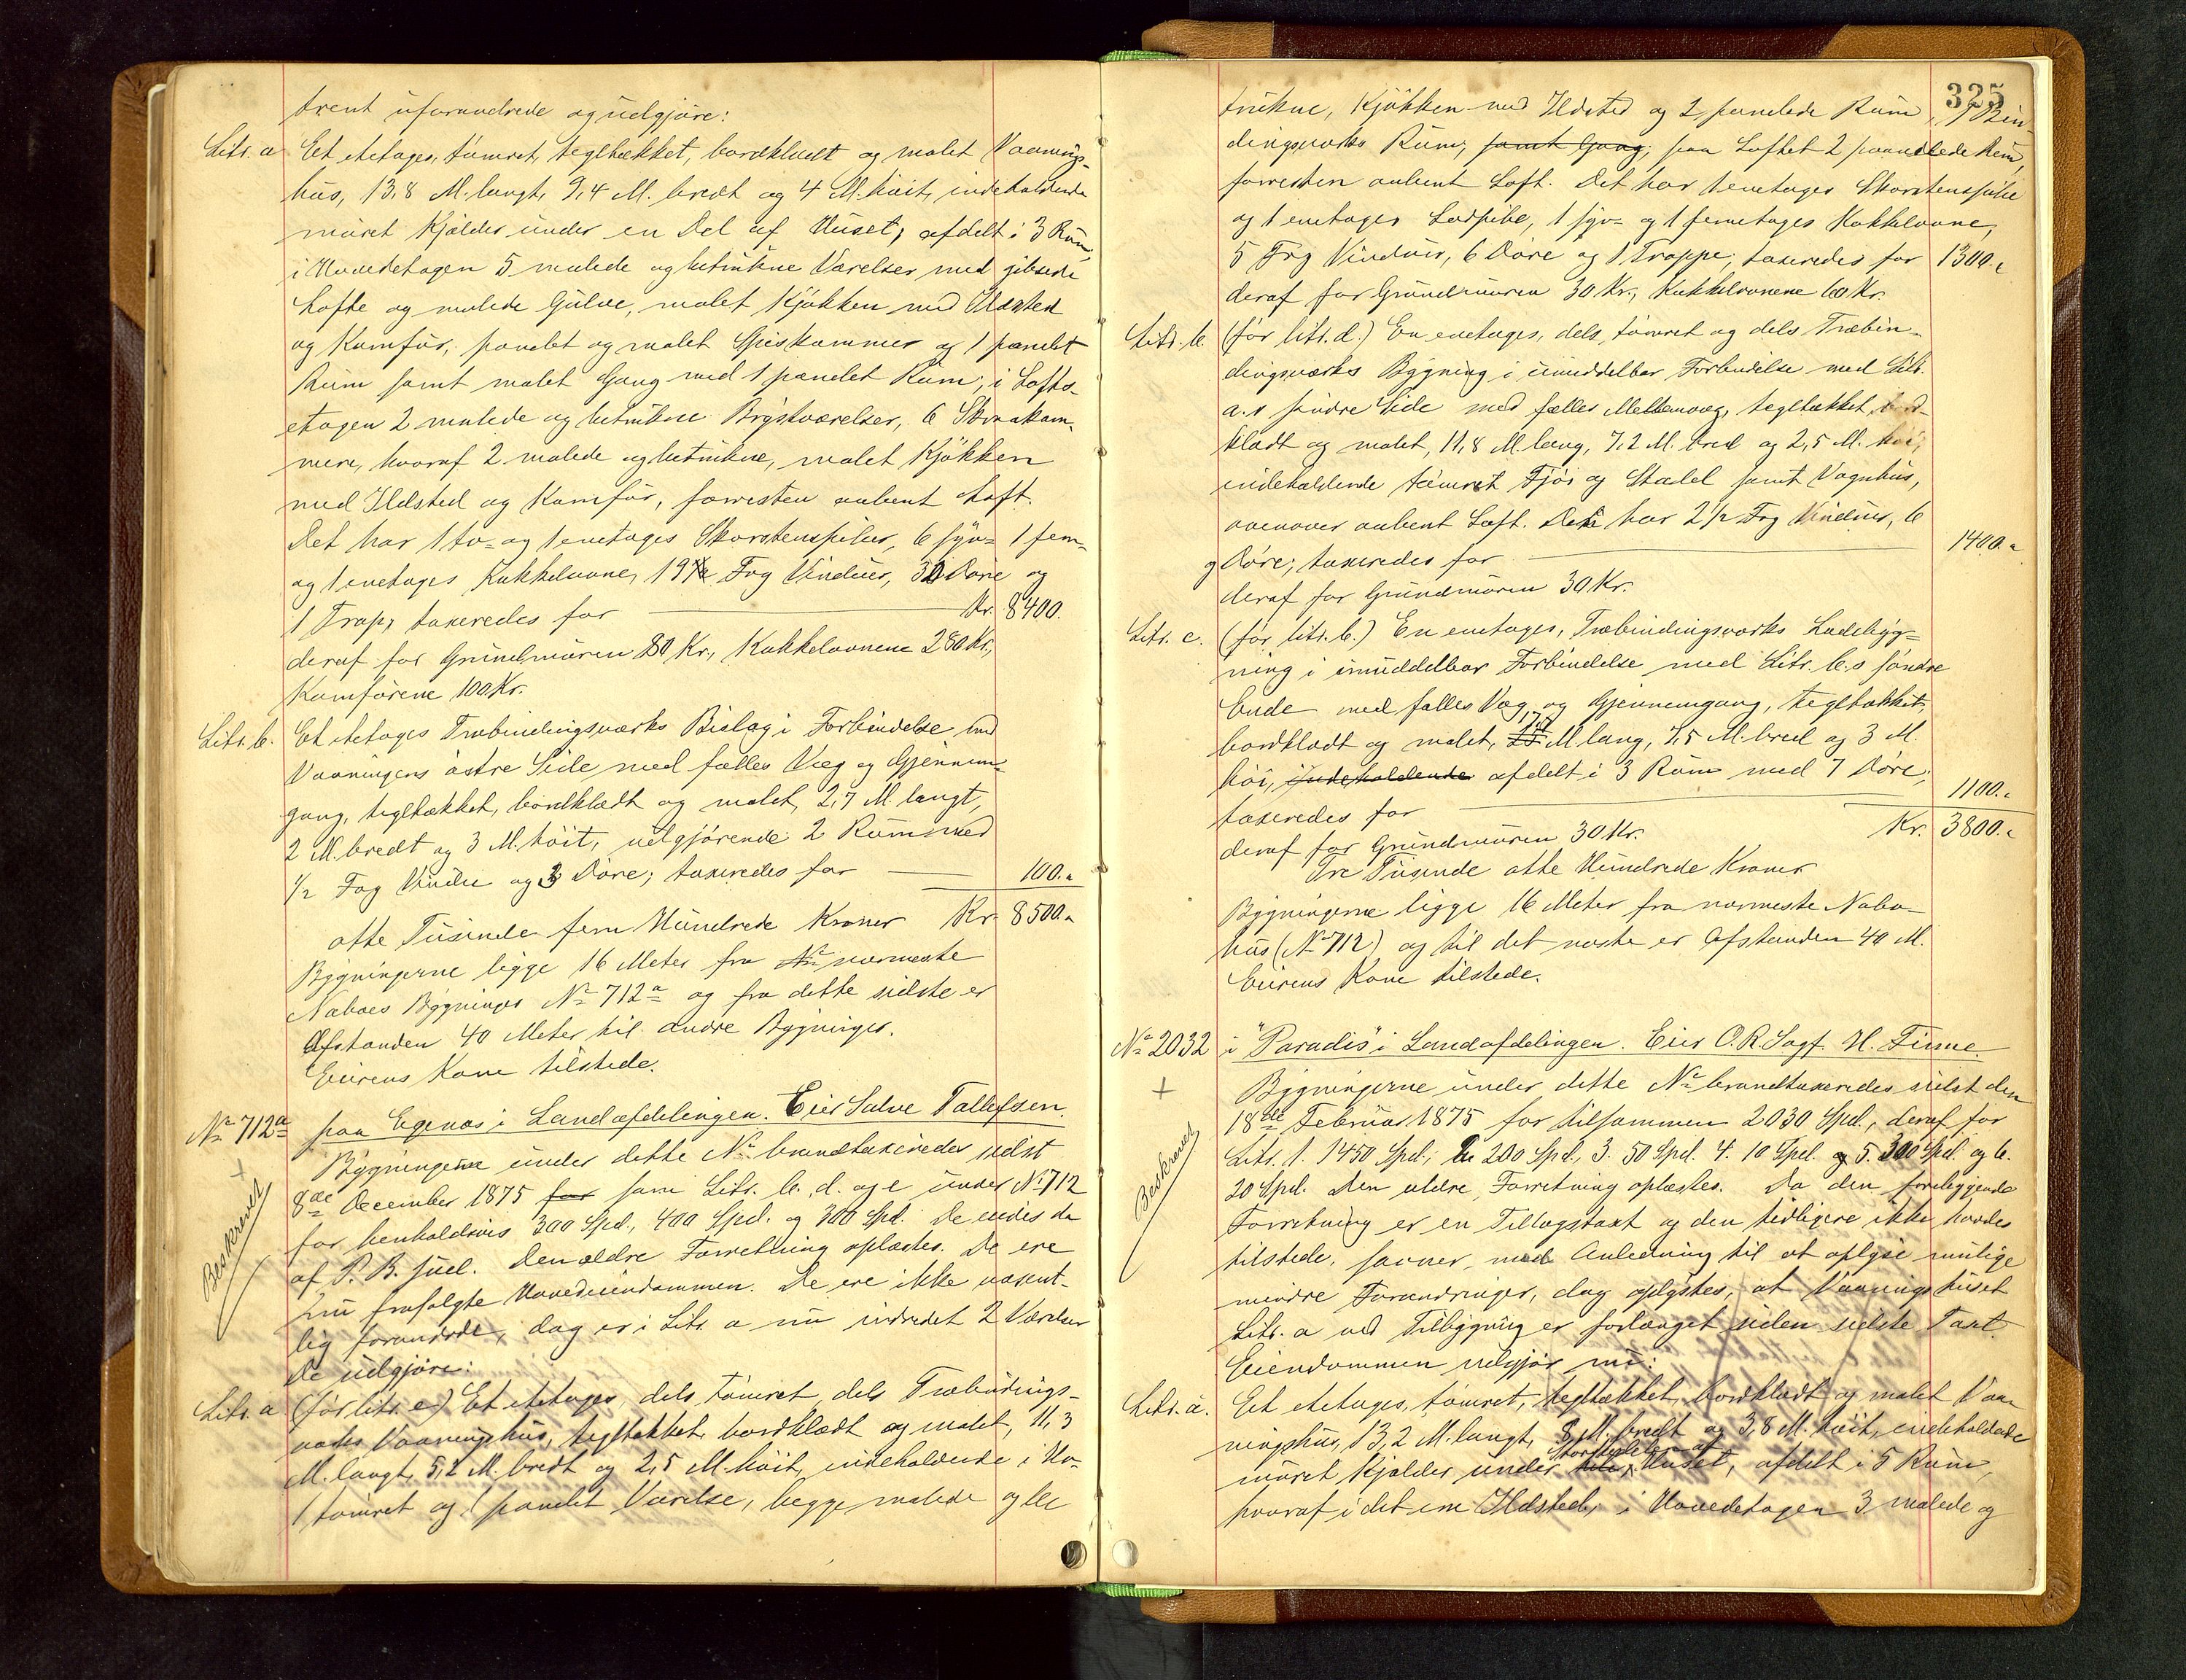 trent uforandrede og udgjøre:
Litr. a Et etetages, tømret, tegltækket, bordklædt og malet Vaanings-
hus, 13,8 M. langt, 9,4 M. bredt og 4 M. høit, indeholdende
muret Kjælder under en Del af Huset, afdelt i 3 Rum,
i Hovedetagen 5 malede og betrukne Værelser med gibsede
Lofte og malede Gulve, malet Kjøkken med Ildsted
og Komfur, panelet og malet Spiskammer og 1 panelet
Rum samt malet Gang med 1 panelet Rum, i Lofts-
etagen 2 malede og betrukne Brystværelser, 6 Skraakam-
mere, hvoraf 2 malede og betrukne, malet Kjøkken
med Ildsted og Komfur, forresten aabent Loft.
Det har 1 to- og 1 enetages Skorstenspiber, 6 syv- 1 fem-
og 1 enetages Kakkelovne, 19 Fag Vinduer, 30 Døre og
1 Trap, taxeredes for Kr. 8400.
deraf for Grundmuren 80 Kr., Kakkelovnene 280 Kr.,
Komfurene 100 Kr.
Litr. b. Et etetages Træbindingsværks Bislag i Forbindelse med
Vaaningens østre Side med fælles Væg og Gjennem-
gang, tegltækket, bordklædt og malet, 2,7 M. langt,
2 M. bredt og 3 M. høit, udgjørende 2 Rum med
1/2 Fag Vindu og 3 Døre; taxeredes for 100.-
otte Tusinde fem Hundrede Kroner Kr. 8500.-
Bygningerne ligge 16 Meter fra nærmeste
Naboes Bygninger No 712a og fra dette sidste er
Afstanden 40 Meter til andre Bygninger.
Eierens Kone tilstede.
No 712a paa Egenæs i Landafdelingen. Eier Salve Tallefsen.
Bygningerne under dette No brandtaxeredes sidst
8de December 1875 for som Litr. b. d. og e under No 712
for henholdsvis 300 Spd., 400 Spd. og 300 Spd. De eiedes da
Beskrevet
af P. B. Juel. Den ældre Forretning oplæstes. De ere
nu frasolgte Hovedeiendommen. De ere ikke væsent-
lig forandrede, dog er i Litr. a nu indredet 2 Værelser
De udgjøre:
Litr. a (før litr. e) Et etetages, dels tømret dels Træbindings-
værks Vaaningshus, tegltækket, bordklædt og malet, 11,3
M. langt, 5,2 M. bredt og 2,5 M. høit, indeholdende i Ho-
1 tømret og 1 panelet Værelse, begge malede og be
325
trukne, Kjøkken med Ildsted og 2 panelede Rum, 7 Bin-
dingsværks Rum, samt Gang; paa Loftet 2 panelede Rum,
forresten aabent Loft. Det har 1 enetages Skorstenspibe
og 1 enetages Ladpibe, 1 syv- og 1 femetages Kakkelovne,
5 Fag Vinduer, 6 Døre og 1 Trappe, taxeredes for 1300.-
deraf for Grundmuren 30 Kr., Kakkelovnene 60 Kr.
Litr. b. (før litr. d.) En enetages, dels tømret og dels Træbin-
dingsværks Bygning i umiddelbar Forbindelse med Litr.
a.s søndre Side med fælles Mellemvæg, tegltækket, bord-
klædt og malet, 11,8 M. lang, 7,2 M. bred og 2,5 M. høi,
indeholdende tømret Fjøs og Stadel samt Vognhus,
ovenover aabent Loft. Det har 2 1/2 Fag Vinduer, 6
Døre; taxeredes for 1400.-
deraf for Grundmuren 30 Kr.
Litr. c. (før litr. b.) En enetages, Træbindingsværks Ladebyg-
ning i umiddelbar Forbindelse med Litr. b.s søndre
Ende med fælles Væg og Gjennemgang, tegltækket,
bordklædt og malet, M. lang, 7,5 M. bred og 3 M.
høi, indeholdende afdelt i 3 Rum med 7 Døre;
taxeredes for 1100.-
deraf for Grundmuren 30 Kr. Kr. 3800.-
Tre Tusinde otte Hundrede Kroner
Bygningerne ligge 16 Meter fra nærmeste Nabo-
hus (No 712) og til det næste er Afstanden 40 M.
Eierens Kone tilstede.
No 2032 i "Paradis" i Landafdelingen. Eier O. R. Sagf. H. Finne.
Bygningerne under dette No brandtaxeredes sidst den
18de Februar 1875 for tilsammen 2030 Spd., deraf for
Litr. 1. 1450 Spd., 2 200 Spd., 3. 50 Spd. 4. 10 Spd. og 5. 300 Spd. og 6.
Beskrevet
20 Spd. Den ældre Forretning oplæstes. Da den foreliggende
Forretning er en Tillægstaxt og den tidligere ikke havdes
tilstede, savner med Anledning til at oplyse mulige
mindre Forandringer, dog oplystes, at Vaaningshuset
Litr. a ved Tilbygning er forlænget siden sidste Taxt.
Eiendommen udgjør nu:
Litr. a. Et etetages, tømret, tegltækket, bordklædt og malet Vaa-
ningshus, 13,2 M. langt, 8 M. bredt og 3,8 M. høit, indeholdende
muret Kjælder under Størstedelen af hele Huset, afdelt i 5 Rum,
hvoraf i det ene Ildsted, i Hovedetagen 3 malede og